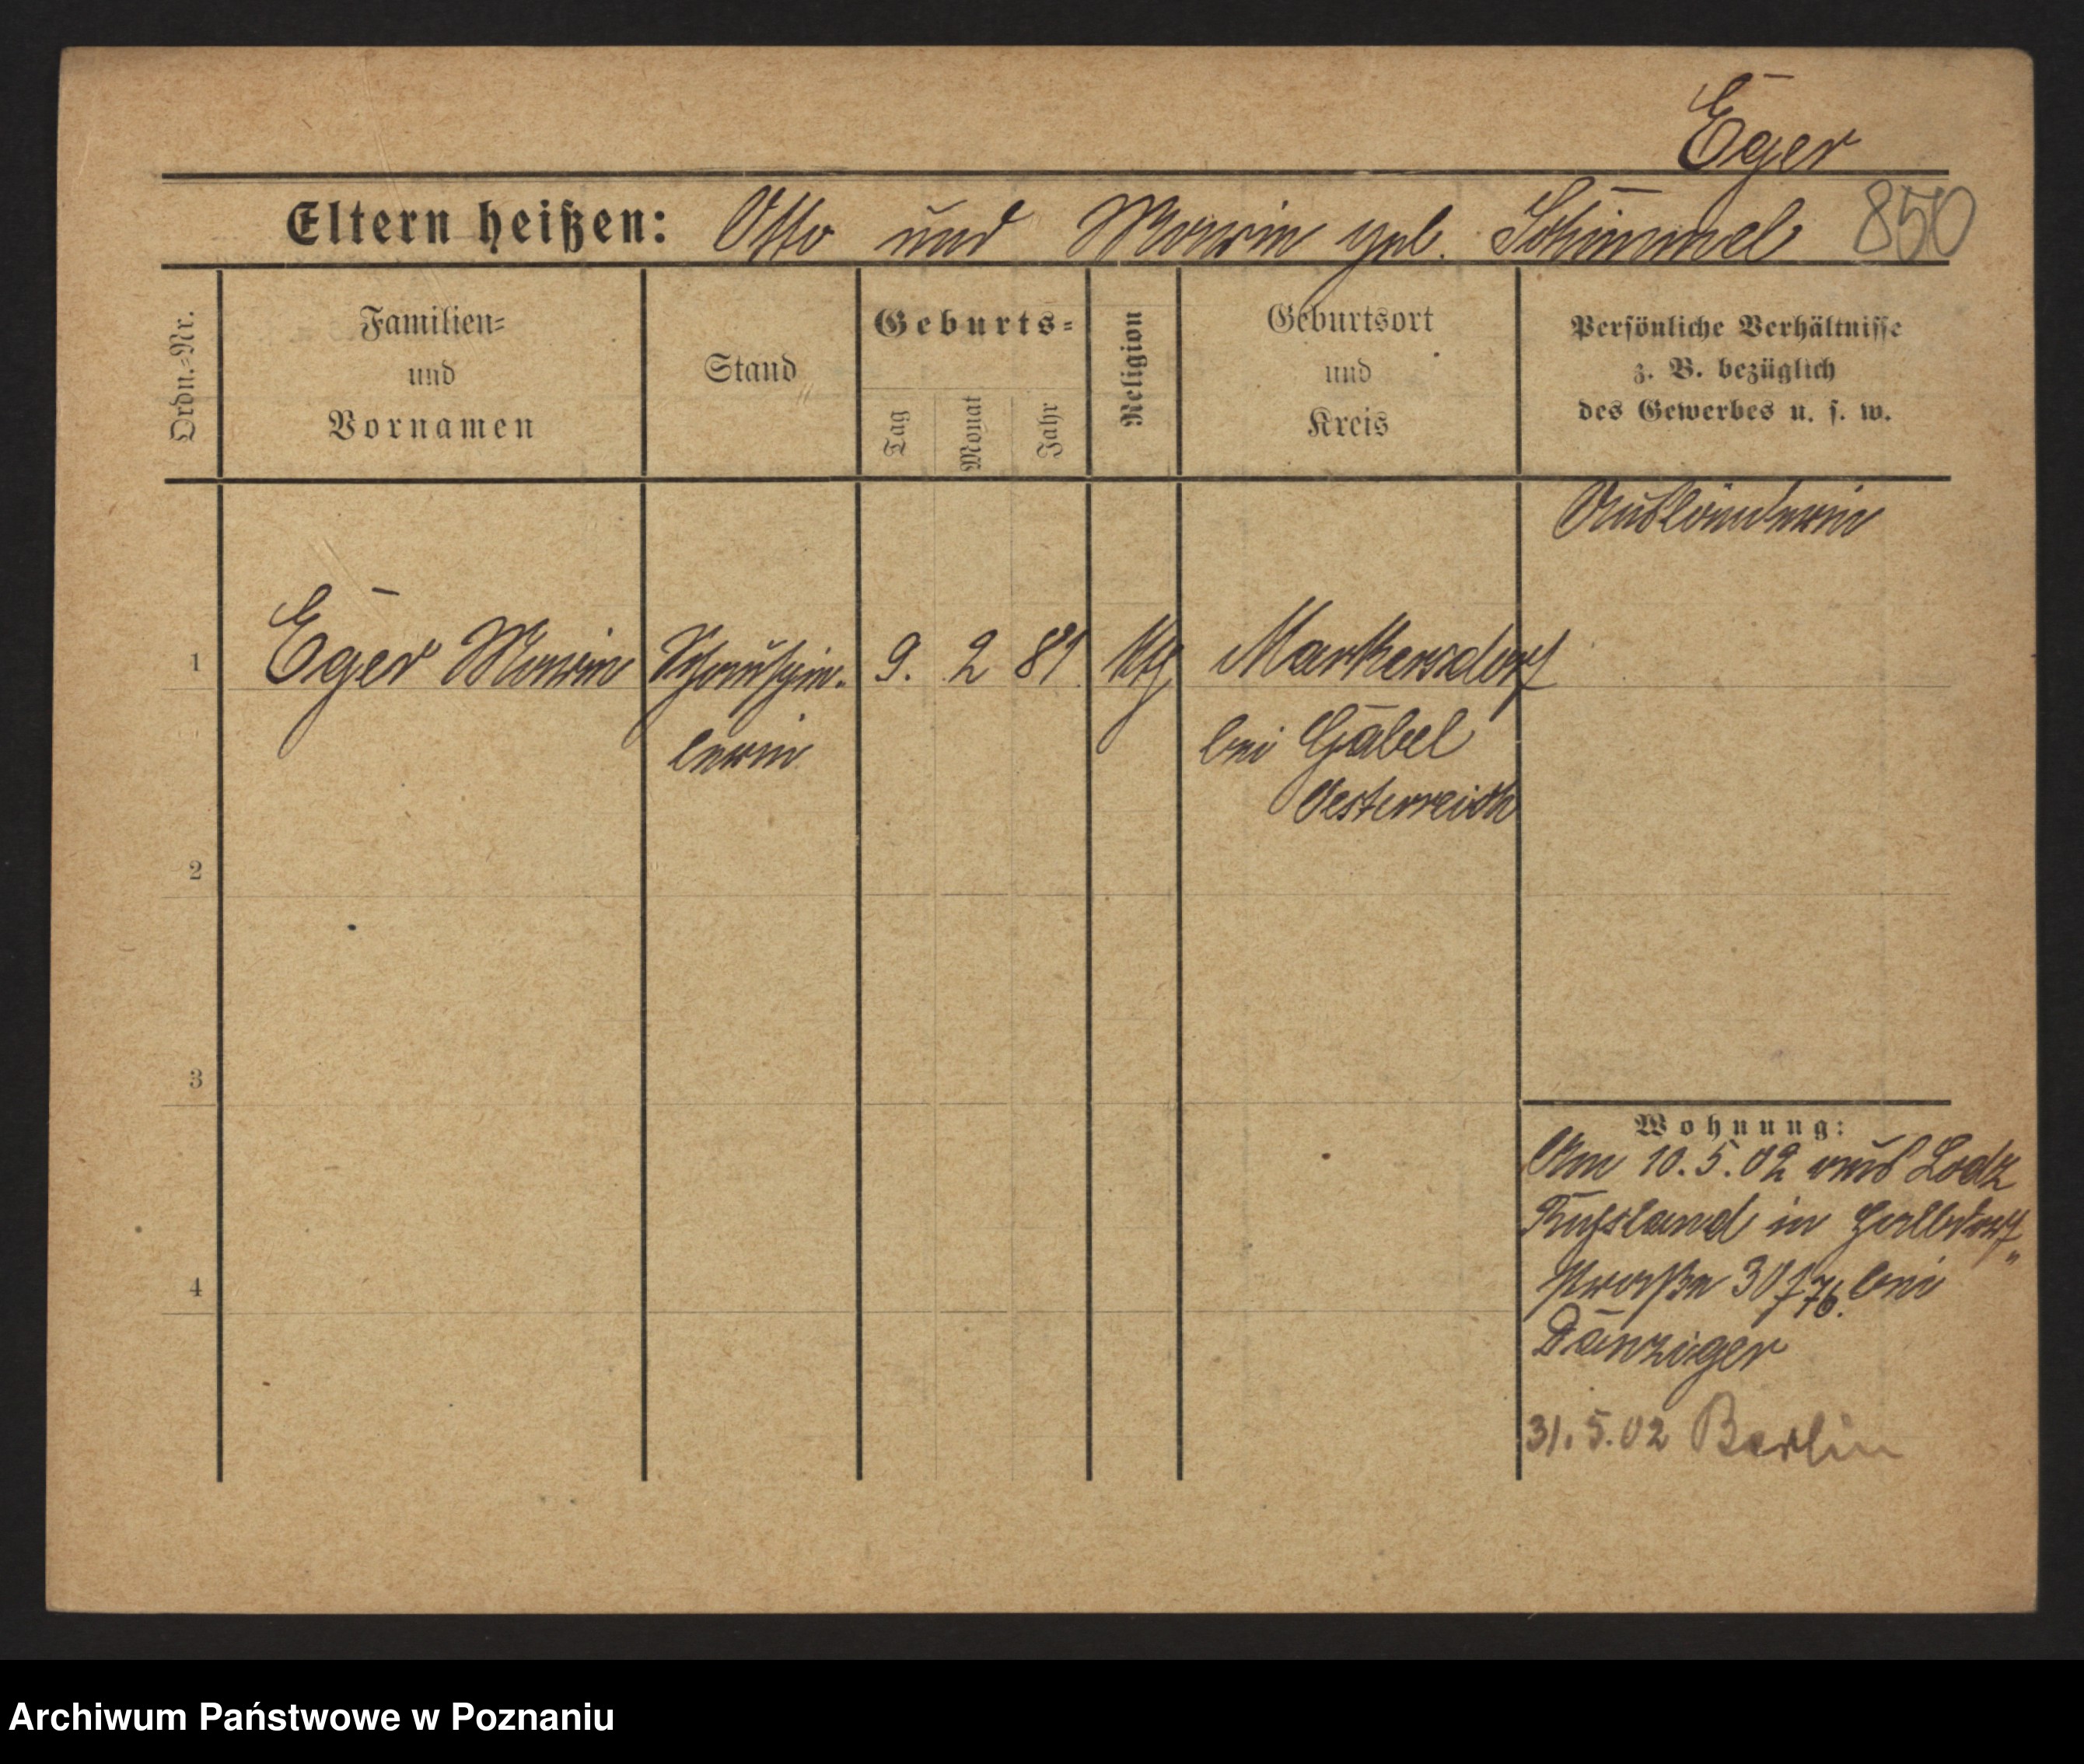 Eger
Eltern heißen: Otto und Maria geb. Schimmel 850
Ordn.=Nr.
Familien=
und
Vornamen
Stand
Geburts=
Tag
Monat
Jahr
Religion
Geburtsort
und
Kreis
Persönliche Verhältnisse
z. B. bezüglich
des Gewerbes u. s. w.
Ausländerin
1 Eger Maria Schauspie- 9. 2 81 kth Markersdorf
lerin bei Gabel
Oesterreich
2
3
4
Wohnung:
Am 10.5.02 aus Lodz
Russland in Halbdorf„
straße 30 bei
Danziger
31.5.02 Berlin
Archiwum Państwowe w Poznaniu